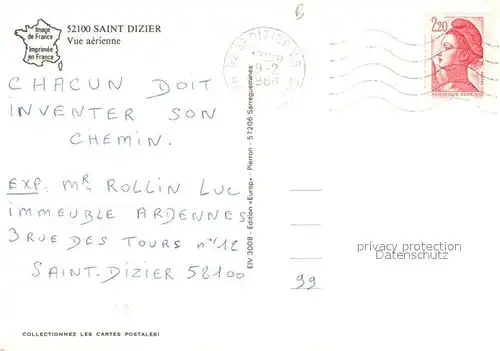 Image
de France
Imprimée
en France
52100 SAINT DIZIER
Vue aérienne
CHACUN DOIT
INVENTER SON
CHEMIN.
EXP: MR ROLLIN LUC
IMMEUBLE ARDENNES
3 RUE DES TOURS n°12
SAINT-DIZIER 52100
COLLECTIONNEZ LES CARTES POSTALES!
EIV 3008 - Edition «Europ» - Pierron - 57206 Sarreguemines
ST DIZIER
2,20
REPUBLIQUE FRANÇAISE
99
privacy protection
Datenschutz